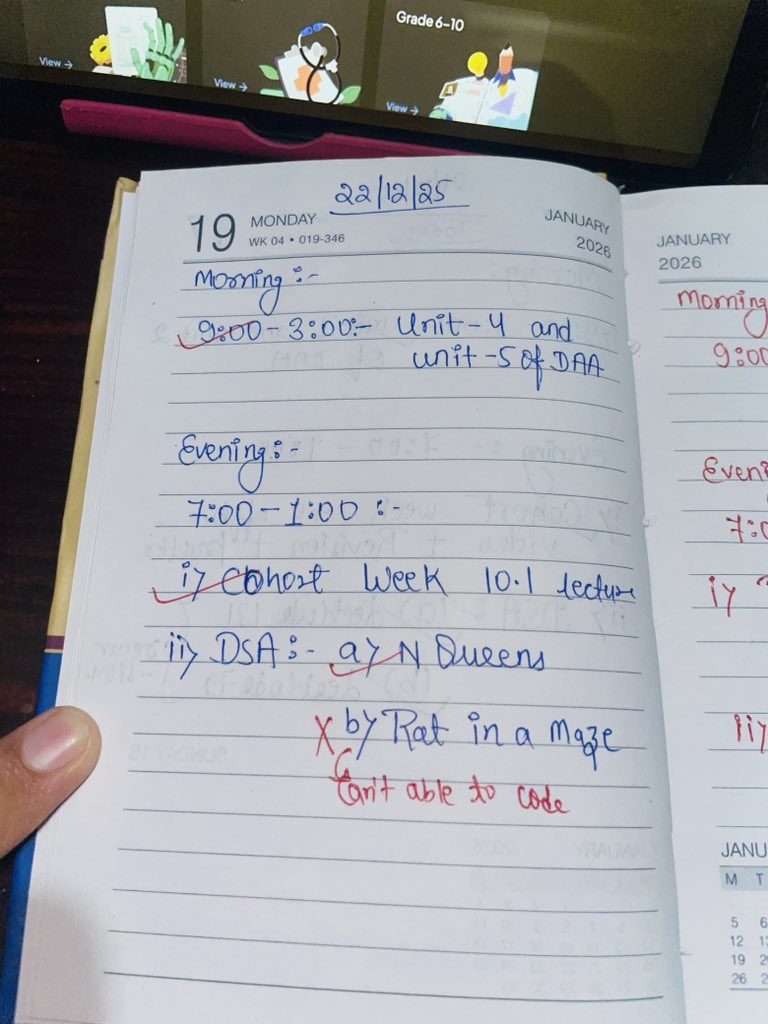 Grade 6–10
View →
View →
View →
22/12/25
19 MONDAY
WK 04 • 019-346
JANUARY
2026
Morning :-
9:00 - 3:00:- Unit-4 and
unit-5 of DAA
Evening :-
7:00 - 1:00 :-
i) Cohort Week 10.1 lecture
ii) DSA :- a) N Queens
X b) Rat in a Maze
Can't able to code
JANUARY
2026
Morning
9:00
Eveni
7:0
i)
ii)
JANU
M T
5 6
12 13
19 20
26 2